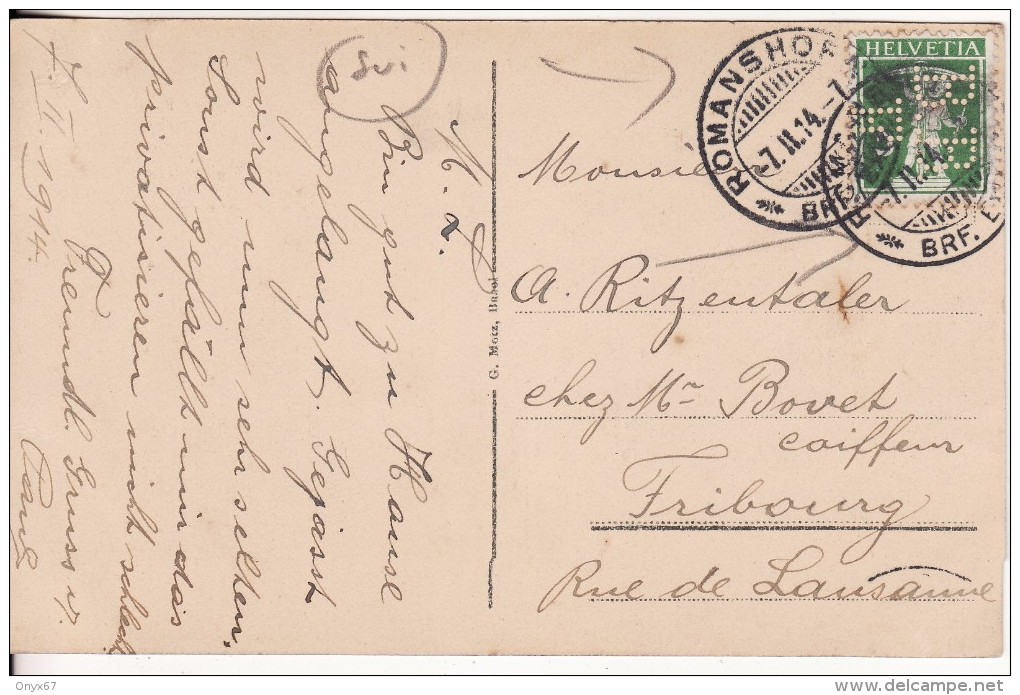 Svi
M. L.
Bin gut zu Hause
angelangt. Gejasst
wird nun sehr selten.
Sonst gefällt mir das
privatisieren nicht schlecht
Freundl. Gruss v.
7. II. 1914.
G. Metz, Basel
HELVETIA
ROMANSHORN
-7.II.14.-7
BRF. EXP.
-7.II.14
BRF. EX
Monsieur
A. Ritzentaler
chez Mr Bovet
coiffeur
Fribourg
Rue de Lausanne
Onyx67
delcampe.net